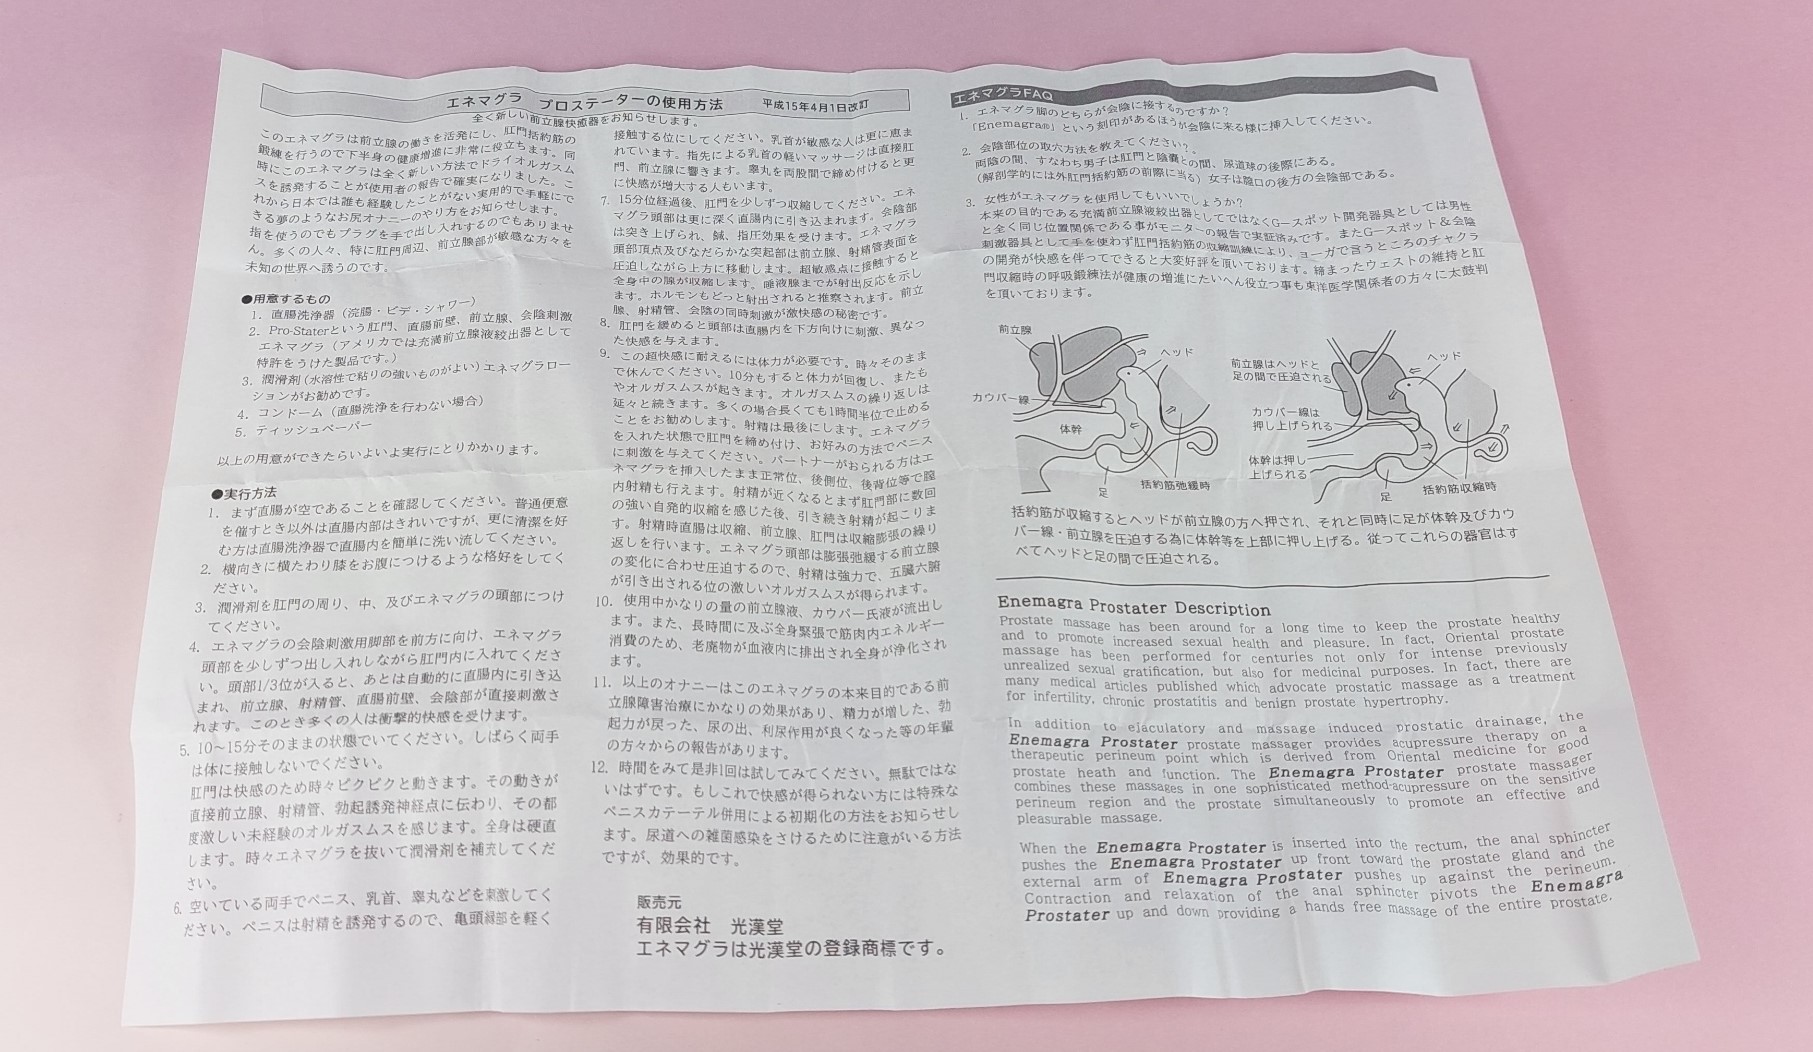 エネマグラ プロステーターの使用方法 平成15年4月1日改訂
全く新しい前立腺快癒器をお知らせします。
このエネマグラは前立腺の働きを活発にし、肛門括約筋の
鍛練を行うので下半身の健康増進に非常に役立ちます。同
時にこのエネマグラは全く新しい方法でドライオルガスム
スを誘発することが使用者の報告で確実になりました。こ
れから日本では誰も経験したことがない実用的で手軽にで
きる夢のようなお尻オナニーのやり方をお知らせします。
指を使うのでもプラグを手で出し入れするのでもありませ
ん。多くの人々、特に肛門周辺、前立腺部が敏感な方々を
未知の世界へ誘うのです。
●用意するもの
1. 直腸洗浄器（浣腸・ビデ・シャワー）
2. Pro-Staterという肛門、直腸前壁、前立腺、会陰刺激
エネマグラ（アメリカでは充満前立腺液絞出器として
特許をうけた製品です。）
3. 潤滑剤（水溶性で粘りの強いものがよい）エネマグラロー
ションがお勧めです。
4. コンドーム（直腸洗浄を行わない場合）
5. ティッシュペーパー
以上の用意ができたらいよいよ実行にとりかかります。
●実行方法
1. まず直腸が空であることを確認してください。普通便意
を催すとき以外は直腸内部はきれいですが、更に清潔を好
む方は直腸洗浄器で直腸内を簡単に洗い流してください。
2. 横向きに横たわり膝をお腹につけるような格好をしてく
ださい。
3. 潤滑剤を肛門の周り、中、及びエネマグラの頭部につけ
てください。
4. エネマグラの会陰刺激用脚部を前方に向け、エネマグラ
頭部を少しずつ出し入れしながら肛門内に入れてくださ
い。頭部1/3位が入ると、あとは自動的に直腸内に引き込
まれ、前立腺、射精管、直腸前壁、会陰部が直接刺激さ
れます。このとき多くの人は衝撃的快感を受けます。
5. 10～15分そのままの状態でいてください。しばらく両手
は体に接触しないでください。
肛門は快感のため時々ピクピクと動きます。その動きが
直接前立腺、射精管、勃起誘発神経点に伝わり、その都
度激しい未経験のオルガスムスを感じます。全身は硬直
します。時々エネマグラを抜いて潤滑剤を補充してくだ
さい。
6. 空いている両手でペニス、乳首、睾丸などを刺激してく
ださい。ペニスは射精を誘発するので、亀頭縁部を軽く
接触する位にしてください。乳首が敏感な人は更に恵ま
れています。指先による乳首の軽いマッサージは直接肛
門、前立腺に響きます。睾丸を両股間で締め付けると更
に快感が増大する人もいます。
7. 15分位経過後、肛門を少しずつ収縮してください。エネ
マグラ頭部は更に深く直腸内に引き込まれます。会陰部
は突き上げられ、鍼、指圧効果を受けます。エネマグラ
頭部頂点及びなだらかな突起部は前立腺、射精管表面を
圧迫しながら上方に移動します。超敏感点に接触すると
全身中の腺が収縮します。唾液腺までが射出反応を示し
ます。ホルモンもどっと射出されると推察されます。前立
腺、射精管、会陰の同時刺激が激快感の秘密です。
8. 肛門を緩めると頭部は直腸内を下方向けに刺激、異なっ
た快感を与えます。
9. この超快感に耐えるには体力が必要です。時々そのまま
で休んでください。10分もすると体力が回復し、またも
やオルガスムスが起きます。オルガスムスの繰り返しは
延々と続きます。多くの場合長くても1時間半位で止める
ことをお勧めします。射精は最後にします。エネマグラ
を入れた状態で肛門を締め付け、お好みの方法でペニス
に刺激を与えてください。パートナーがおられる方はエ
ネマグラを挿入したまま正常位、後側位、後背位等で膣
内射精も行えます。射精が近くなるとまず肛門部に数回
の強い自発的収縮を感じた後、引き続き射精が起こりま
す。射精時直腸は収縮、前立腺、肛門は収縮膨張の繰り
返しを行います。エネマグラ頭部は膨張弛緩する前立腺
の変化に合わせ圧迫するので、射精は強力で、五臓六腑
が引き出される位の激しいオルガスムスが得られます。
10. 使用中かなりの量の前立腺液、カウパー氏液が流出し
ます。また、長時間に及ぶ全身緊張で筋肉内エネルギー
消費のため、老廃物が血液内に排出され全身が浄化され
ます。
11. 以上のオナニーはこのエネマグラの本来目的である前
立腺障害治療にかなりの効果があり、精力が増した、勃
起力が戻った、尿の出、利尿作用が良くなった等の年輩
の方々からの報告があります。
12. 時間をみて是非1回は試してみてください。無駄ではな
いはずです。もしこれで快感が得られない方には特殊な
ペニスカテーテル併用による初期化の方法をお知らせし
ます。尿道への雑菌感染をさけるために注意がいる方法
ですが、効果的です。
販売元
有限会社 光漢堂
エネマグラは光漢堂の登録商標です。
エネマグラFAQ
1. エネマグラ脚のどちらが会陰に接するのですか？
「Enemagra®」という刻印があるほうが会陰に来る様に挿入してください。
2. 会陰部位の取穴方法を教えてください？。
両陰の間、すなわち男子は肛門と陰嚢との間、尿道球の後際にある。
（解剖学的には外肛門括約筋の前際に当る）女子は膣口の後方の会陰部である。
3. 女性がエネマグラを使用してもいいでしょうか？
本来の目的である充満前立腺液絞出器としてではなくG－スポット開発器具としては男性
と全く同じ位置関係である事がモニターの報告で実証済みです。またG－スポット＆会陰
刺激器具として手を使わず肛門括約筋の収縮訓練により、ヨーガで言うところのチャクラ
の開発が快感を伴ってできると大変好評を頂いております。締まったウェストの維持と肛
門収縮時の呼吸鍛練法が健康の増進にたいへん役立つ事も東洋医学関係者の方々に太鼓判
を頂いております。
前立腺
ヘッド
カウパー線
体幹
足
括約筋弛緩時
前立腺はヘッドと
足の間で圧迫される
ヘッド
カウパー線は
押し上げられる
体幹は押し
上げられる
足
括約筋収縮時
括約筋が収縮するとヘッドが前立腺の方へ押され、それと同時に足が体幹及びカウ
パー線・前立腺を圧迫する為に体幹等を上部に押し上げる。従ってこれらの器官はす
べてヘッドと足の間で圧迫される。
Enemagra Prostater Description
Prostate massage has been around for a long time to keep the prostate healthy
and to promote increased sexual health and pleasure. In fact, Oriental prostate
massage has been performed for centuries not only for intense previously
unrealized sexual gratification, but also for medicinal purposes. In fact, there are
many medical articles published which advocate prostatic massage as a treatment
for infertility, chronic prostatitis and benign prostate hypertrophy.
In addition to ejaculatory and massage induced prostatic drainage, the
Enemagra Prostater prostate massager provides acupressure therapy on a
therapeutic perineum point which is derived from Oriental medicine for good
prostate heath and function. The Enemagra Prostater prostate massager
combines these massages in one sophisticated method-acupressure on the sensitive
perineum region and the prostate simultaneously to promote an effective and
pleasurable massage.
When the Enemagra Prostater is inserted into the rectum, the anal sphincter
pushes the Enemagra Prostater up front toward the prostate gland and the
external arm of Enemagra Prostater pushes up against the perineum.
Contraction and relaxation of the anal sphincter pivots the Enemagra
Prostater up and down providing a hands free massage of the entire prostate.